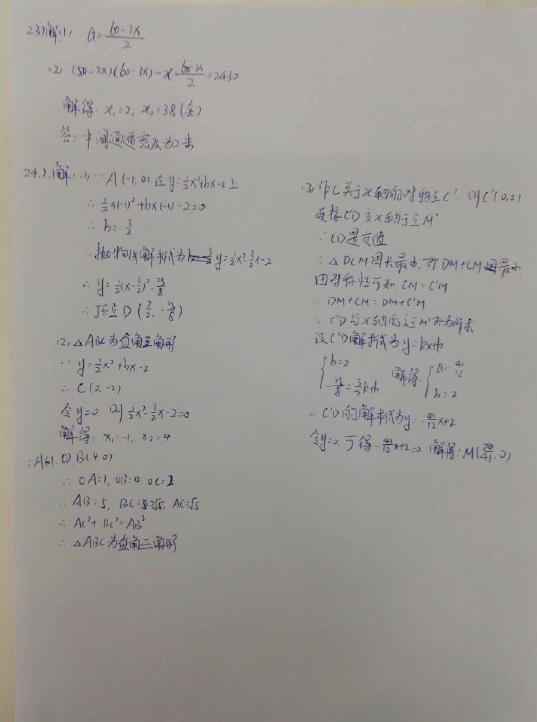 23)解:(1) a=60-3x/2
(2) (50-2x)(60-3x)-x·60-3x/2=2430
解得: x₁=2, x₂=38(舍)
答: 中间通道宽度为2米
24.)解:(1) ∵ A(-1,0)在y=½x²+bx-2上
∴ ½×(-1)²+b×(-1)-2=0
∴ b=-3/2
∴ 抛物线解析式为 y=½x²-3/2x-2
∴ y=½(x-3/2)²-25/8
∴ 顶点D(3/2,-25/8)
(2) △ABC为直角三角形
∵ y=½x²+bx-2
∴ C(0,-2)
令y=0 则½x²-3/2x-2=0
解得: x₁=-1, x₂=4
∴A(-1,0) B(4,0)
∴ OA=1, OB=4 OC=2
∴ AB=5, BC=2√5, AC=√5
∴ AC²+BC²=AB²
∴ △ABC为直角三角形
(3)作C关于x轴的对称点C', 则C'(0,2)
连接C'D交x轴于点M'
∵ CD是定值
∴ △DCM周长最小,即DM+CM最小
由对称性可知 CM=C'M
∴ DM+CM=DM+C'M
∴ C'D与x轴的交点M'即为所求
设C'D解析式为y=kx+b
b=2
-25/8=3/2k+b
解得:
b=2
∴ C'D的解析式为y=-41/12x+2
令y=0 可得-41/12x+2=0 解得: M(24/41,0)